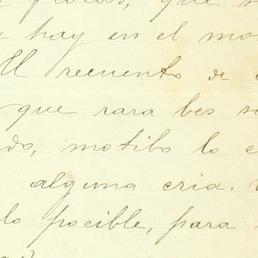 que
hay en el mo
El recuento de
que rara bes se
do, motibo lo c
alguna cria.
lo pocible, para